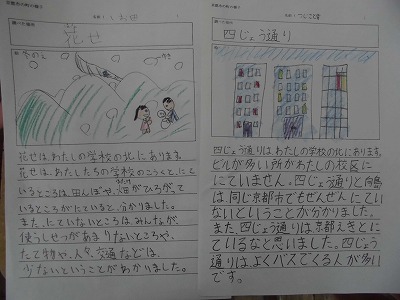 京都市の町の様子
調べた場所
花せ
絵
きのえ
花せは、わたしの学校の北にあります。
花せは、わたしたちの学校のこうくと、にて
いるところは、田んぼや、畑がひろがって
いるところがにていると、分かりました。
また、にていないところは、みんなが、
使うしせつがあまりないところや、
たて物や、人々、交通などは、
少ないということがわかりました。
京都市の町の様子
調べた場所
四じょう通り
絵
四じょう通りは、わたしの学校の北にあります。
ビルが多い所がわたしの校区に
にていません。四じょう通りと向島
は同じ京都市でもぜんぜんにてい
ないということが分かりました。
また、四じょう通りは京都えきとに
ているなと思いました。四じょう
通りは、よくバスでくる人が多い
です。